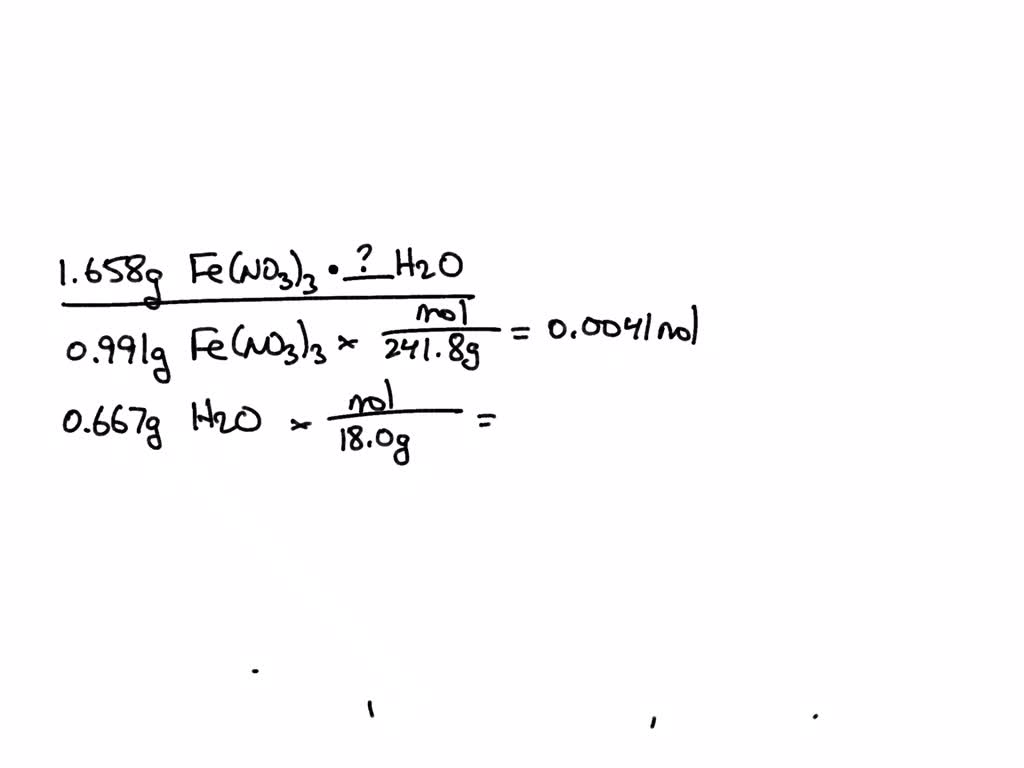 1.658g Fe(NO3)3 • ? H2O
0.991g Fe(NO3)3 × mol / 241.8g = 0.0041 mol
0.667g H2O × mol / 18.0g =